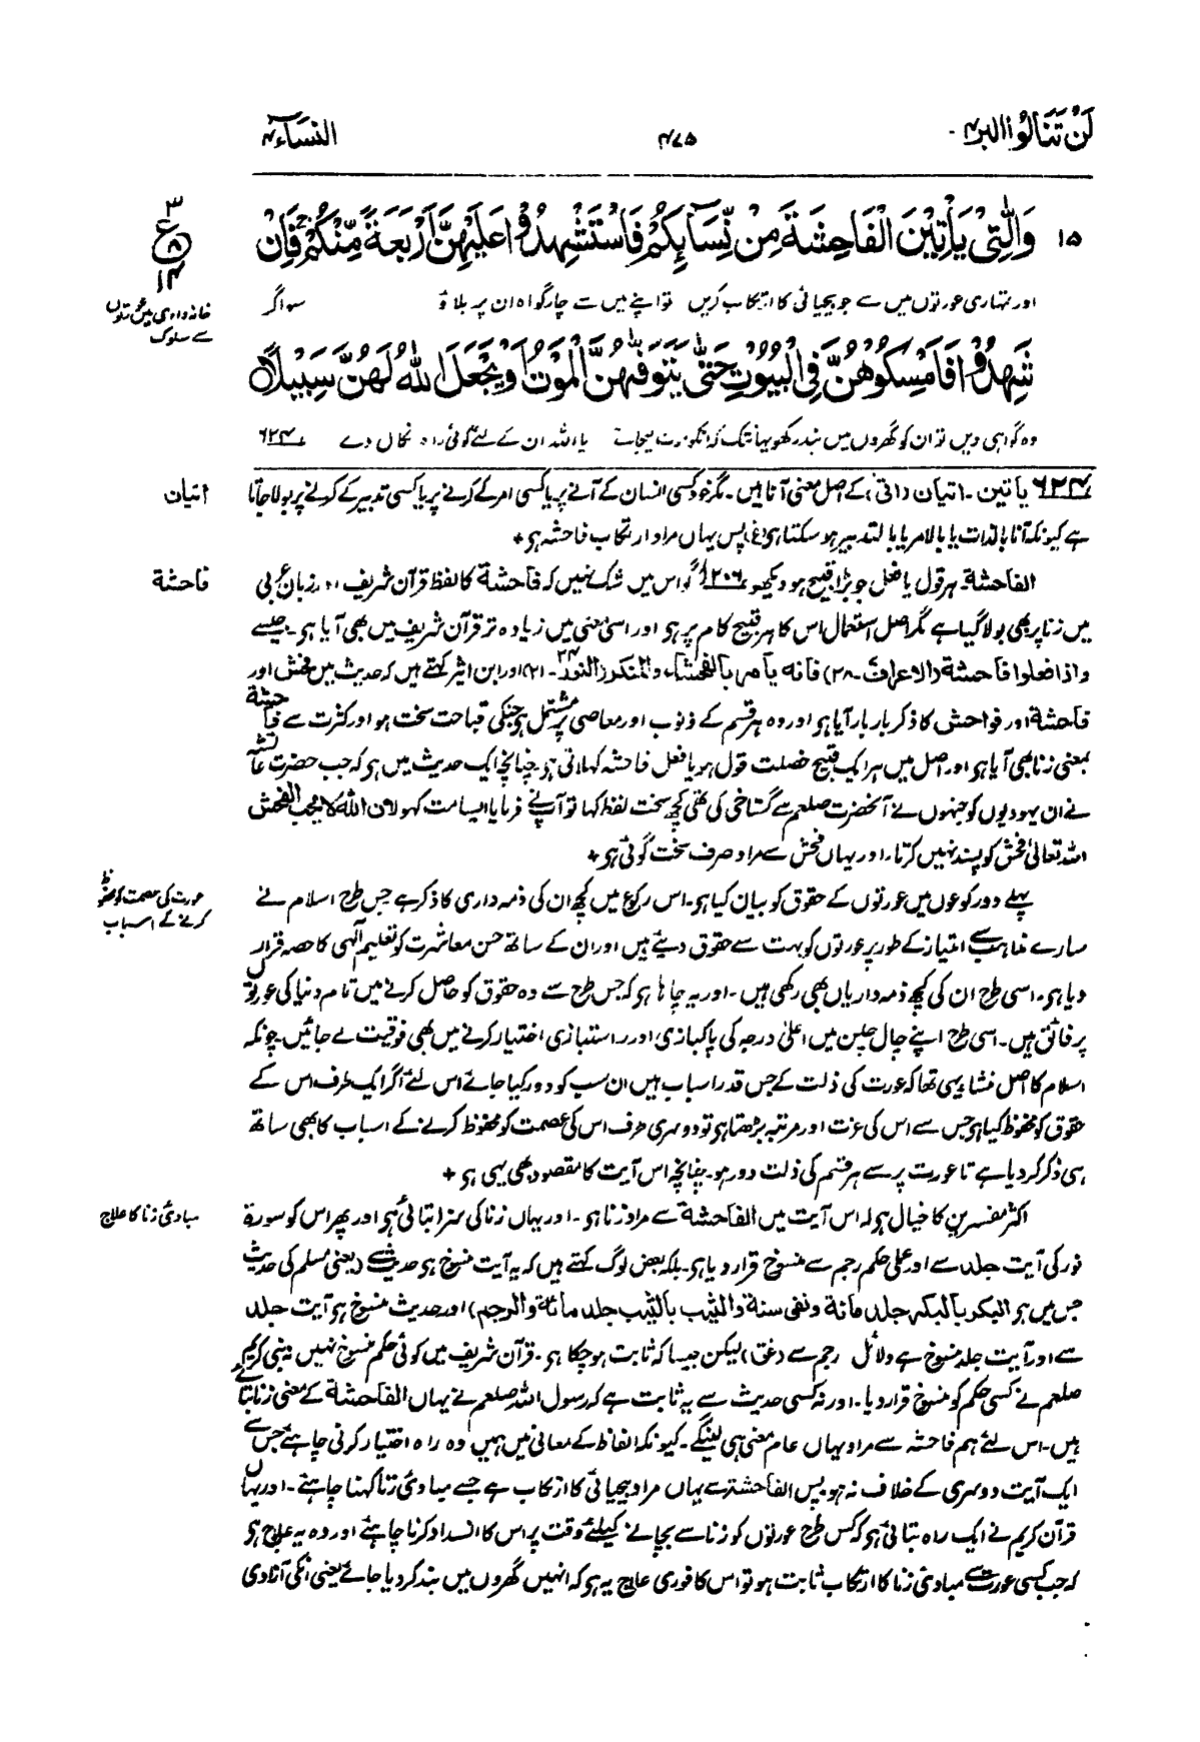 لَنْ تَنَالُوا البر۴
۴۷۵
النساء۴
۱۵ وَالّٰتِیْ یَاْتِیْنَ الْفَاحِشَةَ مِنْ نِّسَآىِٕكُمْ فَاسْتَشْهِدُوْا عَلَیْهِنَّ اَرْبَعَةً مِّنْكُمْ ۚ فَاِنْ
۳
ع
۸
۱۴
اور تمہاری عورتوں میں سے جو بیحیائی کا ارتکاب کریں تو اپنے میں سے چار گواہ ان پر بلاؤ سو اگر
خانہ داری میں عورتوں
سے سلوک
شَهِدُوْا فَاَمْسِكُوْهُنَّ فِی الْبُیُوْتِ حَتّٰی یَتَوَفّٰهُنَّ الْمَوْتُ اَوْ یَجْعَلَ اللّٰهُ لَهُنَّ سَبِیْلًا
وہ گواہی دیں تو ان کو گھروں میں بند رکھو یہانتک کہ انکو موت لیجائے یا اللہ ان کے لئے کوئی راہ نکال دے ۶۲۴
۶۲۴ یاتین۔ اتیان (اتی) کے اصل معنی آنا ہیں۔ مگر وہ کسی انسان کے آنے پر یا کسی امر کے کرنے پر یا کسی تدبیر کے کرنے پر بولا جاتا
اتیان
ہے کیونکہ آنا بالذات یا بالامر یا بالتدبیر ہو سکتا ہی (غ) پس یہاں مراد ارتکاب فاحشہ ہی +
الفاحشة۔ ہر قول یا فعل جو بڑا قبیح ہو دیکھو ۲۰۶ گو اس میں شک نہیں کہ فاحشة کا لفظ قرآن شریف اور زبان عربی
فاحشة
میں زنا پر بھی بولا گیا ہے مگر اصل استعمال اس کا ہر قبیح کام پر ہو اور اسی معنی میں زیادہ تر قرآن شریف میں بھی آیا ہو۔ جیسے
واذا فعلوا فاحشة (الاعراف ۔ ۲۸) فانه یامر بالفحشاء والمنکر (النور ۲۴ ۔ ۲۱) اور ابن اثیر کہتے ہیں کہ حدیث میں فحش اور
فاحشة اور فواحش کا ذکر بار بار آیا ہو اور وہ ہر قسم کے ذنوب اور معاصی پر مشتمل ہو جنکی قباحت سخت ہو اور کثرت سے فاحشة
بمعنی زنا بھی آیا ہو اور اصل میں ہر ایک قبیح خصلت قول ہو یا فعل فاحشہ کہلاتی ہو چنانچہ ایک حدیث میں ہو کہ جب حضرت عائشہ
نے ان یہودیوں کو جنہوں نے آنحضرت صلعم سے گستاخی کی تھی کچھ سخت لفظ کہا تو آپنے فرمایا ایسا مت کہو لان اللہ لا یحب الفحش
اللہ تعالیٰ فحش کو پسند نہیں کرتا۔ اور یہاں فحش سے مراد صرف سخت گوئی ہو +
پہلے دو رکوعوں میں عورتوں کے حقوق کو بیان کیا ہو۔ اس رکوع میں کچھ ان کی ذمہ داری کا ذکر ہے جس طرح اسلام نے
عورت کی عصمت کو محفوظ
کرنے کے اسباب
سارے مذاہب سے امتیاز کے طور پر عورتوں کو بہت سے حقوق دیئے ہیں اور ان کے ساتھ حسن معاشرت کو تعلیم الٰہی کا حصہ قرار
دیا ہو۔ اسی طرح ان کی کچھ ذمہ داریاں بھی رکھی ہیں۔ اور یہ چاہا ہو کہ جس طرح سے وہ حقوق کو حاصل کرنے میں تمام دنیا کی عورتوں
پر فائق ہیں۔ اسی طرح اپنے چال چلن میں اعلیٰ درجہ کی پاکبازی اور راستبازی اختیار کرنے میں بھی فوقیت لے جائیں۔ چونکہ
اسلام کا اصل منشاء یہی تھا کہ عورت کی ذلت کے جس قدر اسباب ہیں ان سب کو دور کیا جائے اس لئے اگر ایک طرف اس کے
حقوق کو محفوظ کیا ہو جس سے اس کی عزت اور مرتبہ بڑھتا ہو تو دوسری طرف اس کی عصمت کو محفوظ کرنے کے اسباب کا بھی ساتھ
ہی ذکر کر دیا ہے تا عورت پر سے ہر قسم کی ذلت دور ہو۔ چنانچہ اس آیت کا مقصود بھی یہی ہو +
اکثر مفسرین کا خیال ہو کہ اس آیت میں الفاحشة سے مراد زنا ہو۔ اور یہاں زنا کی سزا بتائی ہو اور پھر اس کو سورۃ
مبادیٔ زنا کا علاج
نور کی آیت جلد سے اور عملی حکم رجم سے منسوخ قرار دیا ہو۔ بلکہ بعض لوگ کہتے ہیں کہ یہ آیت منسوخ ہو حدیث سے (یعنی مسلم کی حدیث
جس میں ہو البکر بالبکر جلد مائة ونفی سنة والثیب بالثیب جلد مائة والرجم) اور حدیث منسوخ ہو آیت جلد
سے اور آیت جلد منسوخ ہے دلائل رجم سے (غق) لیکن جیسا کہ ثابت ہو چکا ہو۔ قرآن شریف میں کوئی حکم منسوخ نہیں نہ نبی کریم
صلعم نے کسی حکم کو منسوخ قرار دیا۔ اور نہ کسی حدیث سے یہ ثابت ہے کہ رسول اللہ صلعم نے یہاں الفاحشة کے معنی زنا بتائے
ہیں۔ اس لئے ہم فاحشہ سے مراد یہاں عام معنی ہی لینگے۔ کیونکہ الفاظ کے معانی میں ہمیں وہ راہ اختیار کرنی چاہئے جس سے
ایک آیت دوسری کے خلاف نہ ہو پس الفاحشة سے یہاں مراد بیحیائی کا ارتکاب ہے جسے مبادیٔ زنا کہنا چاہئے۔ اور یہاں
قرآن کریم نے ایک راہ بتائی ہو کہ کس طرح عورتوں کو زنا سے بچانے کیلئے وقت پر اس کا انسداد کرنا چاہئے اور وہ یہ علاج ہو
کہ جب کسی عورت سے مبادیٔ زنا کا ارتکاب ثابت ہو تو اس کا فوری علاج یہ ہو کہ انہیں گھروں میں بند کر دیا جائے یعنی انکی آزادی